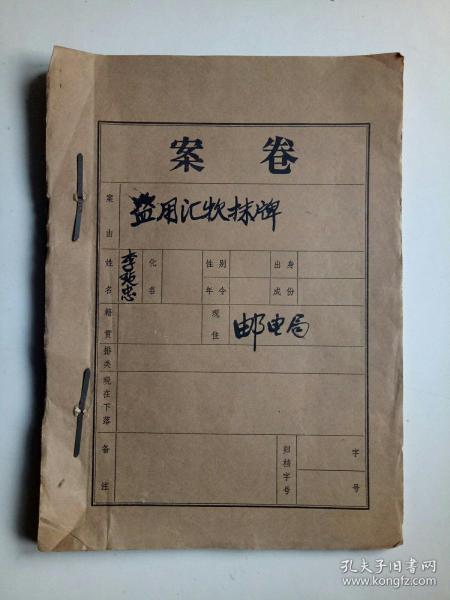 案卷
案由 盗用汇牧抹牌
姓名 李 忠 化名 性别 出身
年令 成份
籍贯 现住 邮电局
掛类
现在下落
备注 归档字号 字
号
孔夫子旧书网
www.kongfz.com